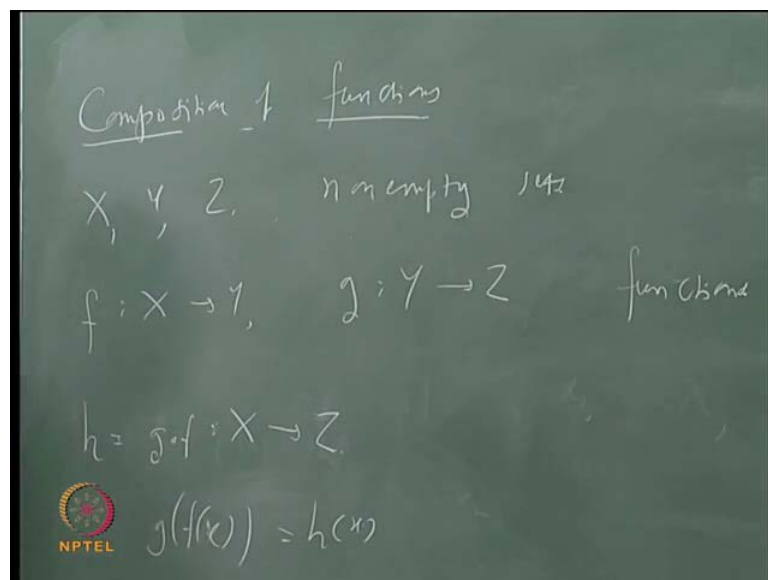 Composition of functions
X, Y, Z. nonempty sets
f : X → Y, g : Y → Z functions
h = g∘f : X → Z.
g(f(x)) = h(x)
NPTEL